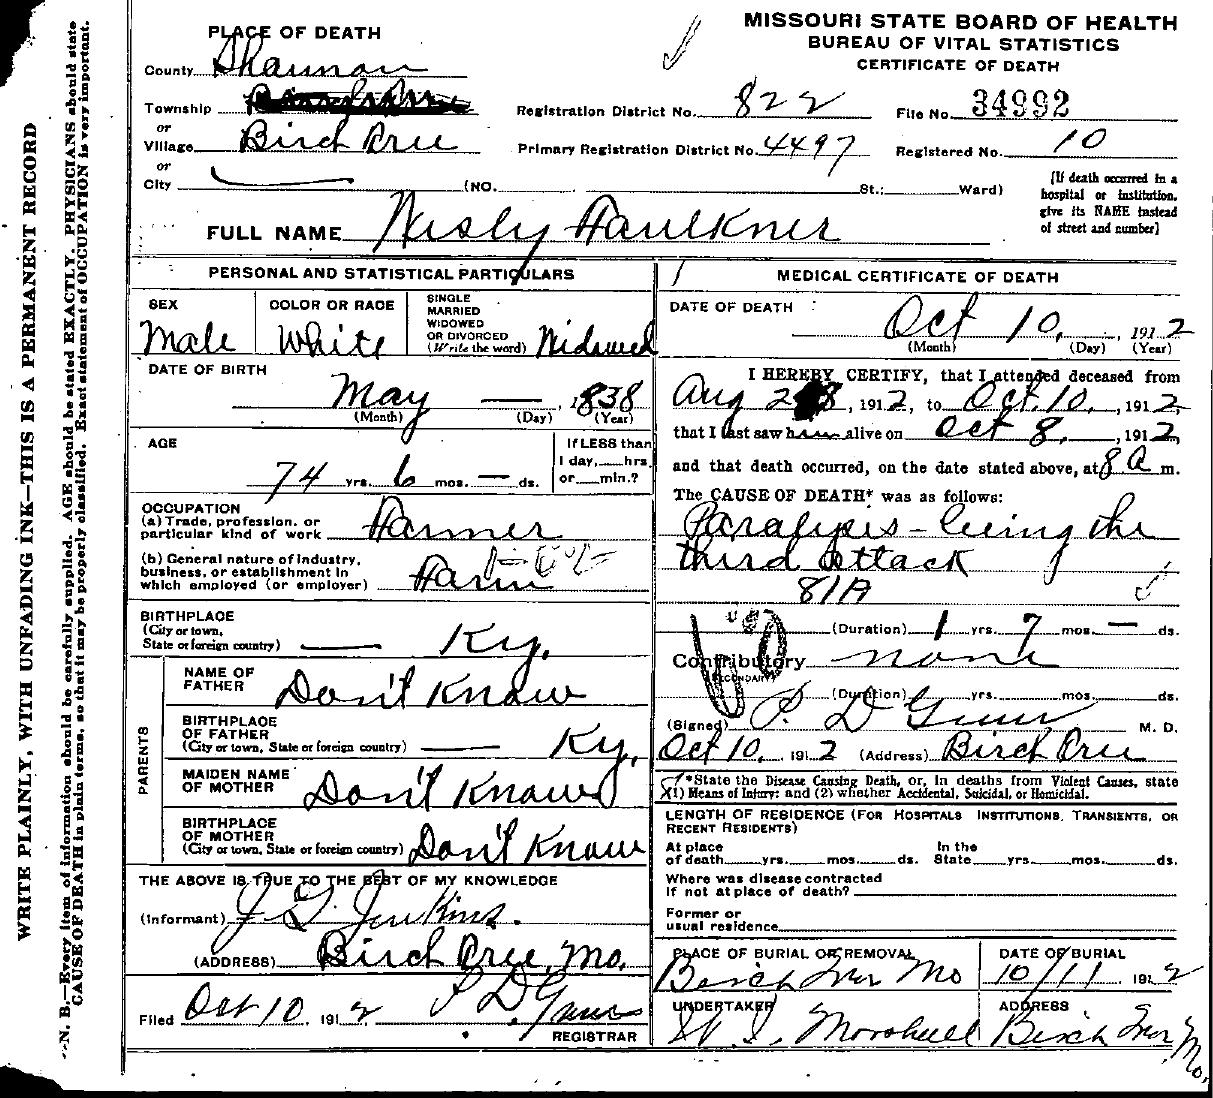 MISSOURI STATE BOARD OF HEALTH
BUREAU OF VITAL STATISTICS
CERTIFICATE OF DEATH
PLACE OF DEATH
County Shannon
Township
or
Village Birch Tree
or
City (NO. St.; Ward)
Registration District No. 822
File No. 34992
Primary Registration District No. 4497
Registered No. 10
[If death occurred in a
hospital or institution,
give its NAME instead
of street and number]
FULL NAME Nesly Faulkner
PERSONAL AND STATISTICAL PARTICULARS
SEX
Male
COLOR OR RACE
White
SINGLE
MARRIED
WIDOWED
OR DIVORCED
(Write the word) Widowed
DATE OF BIRTH
May — , 1838
(Month) (Day) (Year)
AGE
74 yrs. 6 mos. — ds.
If LESS than
1 day, hrs.
or min.?
OCCUPATION
(a) Trade, profession, or
particular kind of work Farmer
(b) General nature of industry,
business, or establishment in
which employed (or employer) Farm
BIRTHPLACE
(City or town,
State or foreign country) — Ky.
PARENTS
NAME OF
FATHER Don't Know
BIRTHPLACE
OF FATHER
(City or town, State or foreign country) — Ky.
MAIDEN NAME
OF MOTHER Don't Know
BIRTHPLACE
OF MOTHER
(City or town, State or foreign country) Don't Know
THE ABOVE IS TRUE TO THE BEST OF MY KNOWLEDGE
(Informant) J. G. Jenkins.
(ADDRESS) Birch Tree, Mo.
Filed Oct 10 1912 P. D. Gunn
REGISTRAR
MEDICAL CERTIFICATE OF DEATH
DATE OF DEATH
Oct 10, , 1912
(Month) (Day) (Year)
I HEREBY CERTIFY, that I attended deceased from
Aug 28, 1912, to Oct. 10, , 1912,
that I last saw him alive on Oct 8, , 1912,
and that death occurred, on the date stated above, at 8 a m.
The CAUSE OF DEATH* was as follows:
Paralysis – being the
third attack
81A
(Duration) 1 yrs. 7 mos. — ds.
Contributory none
(SECONDARY)
(Duration) yrs. mos. ds.
(Signed) P. D. Gunn M. D.
Oct 10, 1912 (Address) Birch Tree
*State the Disease Causing Death, or, in deaths from Violent Causes, state
(1) Means of Injury; and (2) whether Accidental, Suicidal, or Homicidal.
LENGTH OF RESIDENCE (FOR HOSPITALS INSTITUTIONS, TRANSIENTS, OR
RECENT RESIDENTS)
At place
of death yrs. mos. ds.
In the
State yrs. mos. ds.
Where was disease contracted
if not at place of death?
Former or
usual residence
PLACE OF BURIAL OR REMOVAL
Birch Tree Mo
DATE OF BURIAL
10/11 1912
UNDERTAKER
ADDRESS
Birch Tree Mo.
WRITE PLAINLY, WITH UNFADING INK—THIS IS A PERMANENT RECORD
N. B.—Every item of information should be carefully supplied. AGE should be stated EXACTLY. PHYSICIANS should state
CAUSE OF DEATH in plain terms, so that it may be properly classified. Exact statement of OCCUPATION is very important.